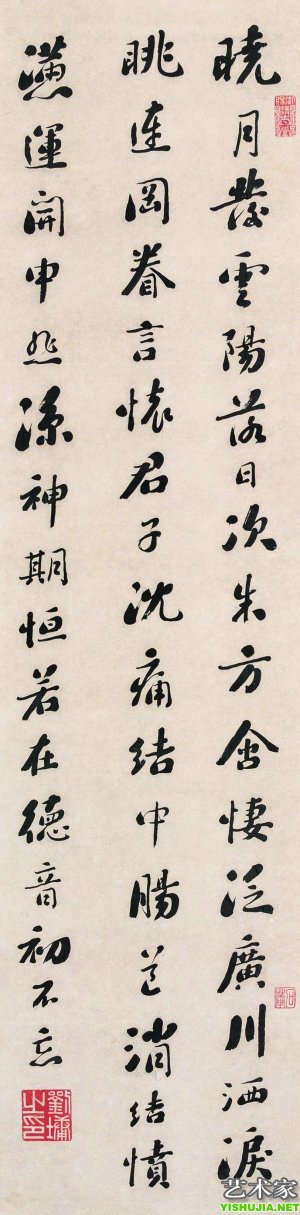 曉月發雲陽落日次朱方含悽泛廣川洒淚
眺連岡眷言懷君子沈痛結中腸道消結憤
懣運開申悲涼神期恒若在德音初不忘
劉墉之印
艺术家
YISHUJIA.NET